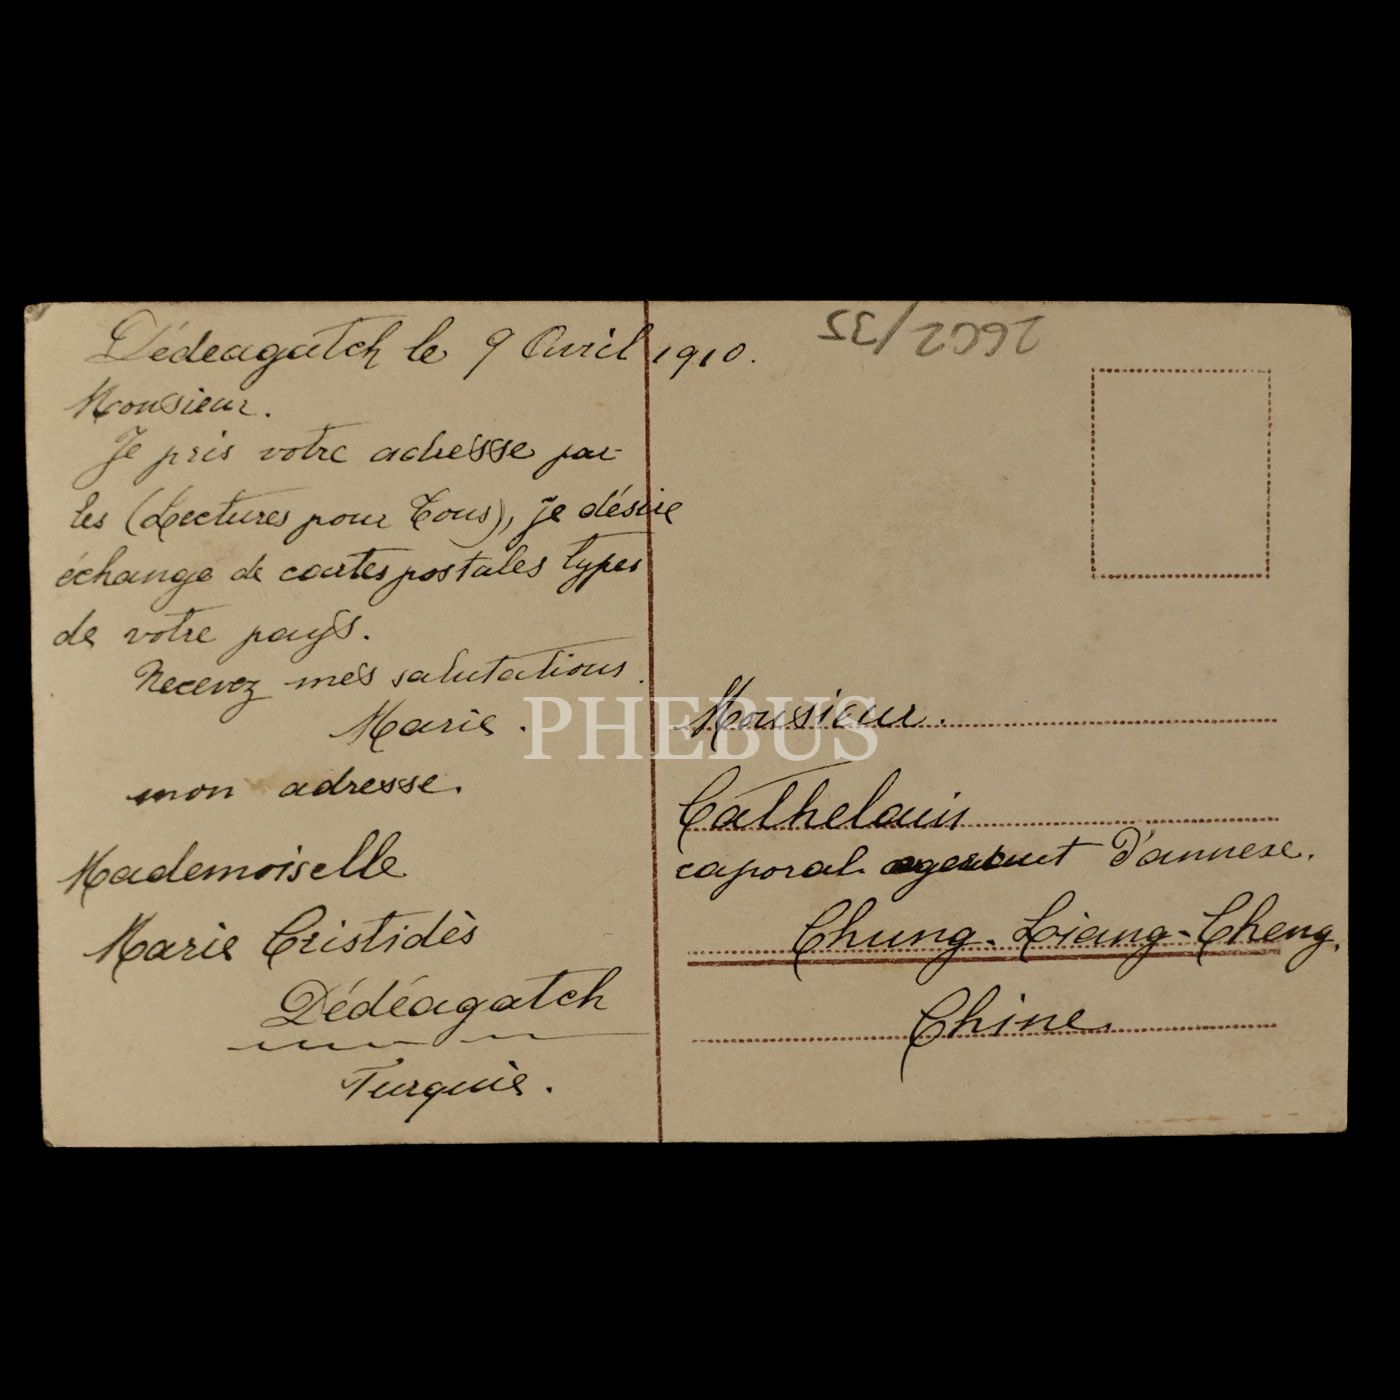 Dédeagatch le 9 Avril 1910.
Monsieur.
Je pris votre adresse par
les (Lectures pour Tous), je désire
échange de cartes postales types
de votre pays.
Recevez mes salutations.
Marie.
mon adresse.
Mademoiselle
Marie Cristidès
Dédéagatch
Turquie.
2662/35
Monsieur.
Cathelain
caporal d'annexe.
Chung-Liang-Cheng,
Chine.
PHEBUS